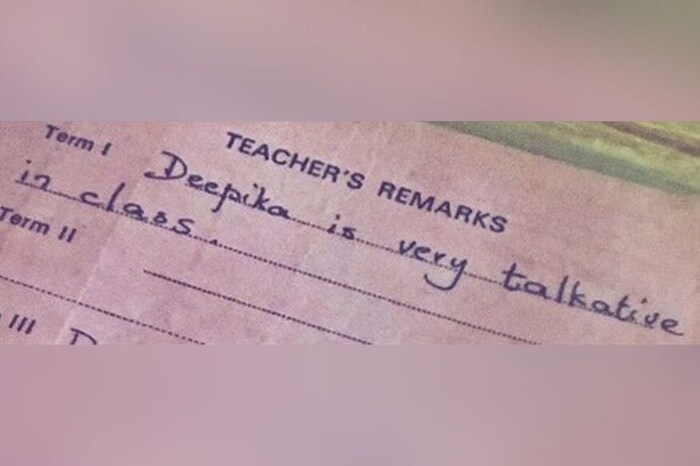 TEACHER'S REMARKS
Term I Deepika is very talkative
in class.
Term II
III D